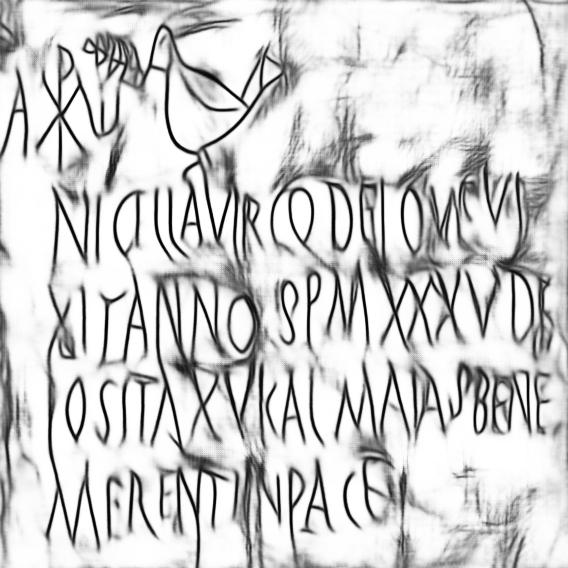 A ☧ Ω
NICELLA VIRGO DEI QVE VI
XIT ANNOS PM XXXV DEP
OSITA XV KAL MAIAS BENE
MERENTI IN PACE